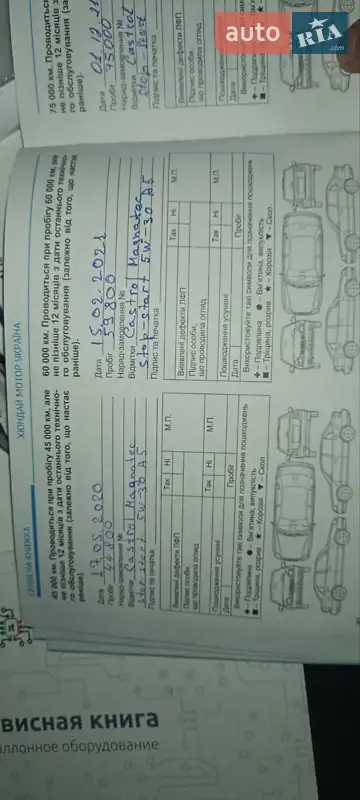 auto RIA.com
СЕРВІСНА КНИЖКА
ХЮНДАЙ МОТОР УКРАЇНА
45 000 км. Проводиться при пробігу 45 000 км, але
не пізніше 12 місяців з дати останнього технічно-
го обслуговування (залежно від того, що настає
раніше).
Дата 17.05.2020
Пробіг
Наряд-замовлення №
Відмітки Castrol Magnatec
stop-start 5W-30 A5
Підпис та печатка
М.П.
Так Ні
Виявлені дефекти ЛФП
Підпис особи,
що проводила огляд
Так Ні М.П.
Пошкодження усунені
Дата Пробіг
Використовуйте такі символи для позначення пошкоджень
+ – Подряпина ● – Вм'ятина, випуклість
■ – Тріщина, розрив ★ – Корозія ▼ – Скол
60 000 км. Проводиться при пробігу 60 000 км, але
не пізніше 12 місяців з дати останнього технічно-
го обслуговування (залежно від того, що настає
раніше).
Дата 15.02.2021
Пробіг 59800
Наряд-замовлення №
Відмітки Castrol Magnatec
stop-start 5W-30 A5
Підпис та печатка
М.П.
Так Ні
Виявлені дефекти ЛФП
Підпис особи,
що проводила огляд
Так Ні М.П.
Пошкодження усунені
Дата Пробіг
Використовуйте такі символи для позначення пошкоджень
+ – Подряпина ● – Вм'ятина, випуклість
■ – Тріщина, розрив ★ – Корозія ▼ – Скол
75 000 км. Проводиться
не пізніше 12 місяців з
го обслуговування (за
раніше).
Дата
Пробіг 75000
Наряд-замовлення №
Відмітки Castrol
stop-start
Підпис та печатка
Виявлені дефекти ЛФП
Підпис особи,
що проводила огляд
Пошкодження
Дата
Використовуйте
+ – Подряпина
■ – Тріщина
висная книга
аллонное оборудование